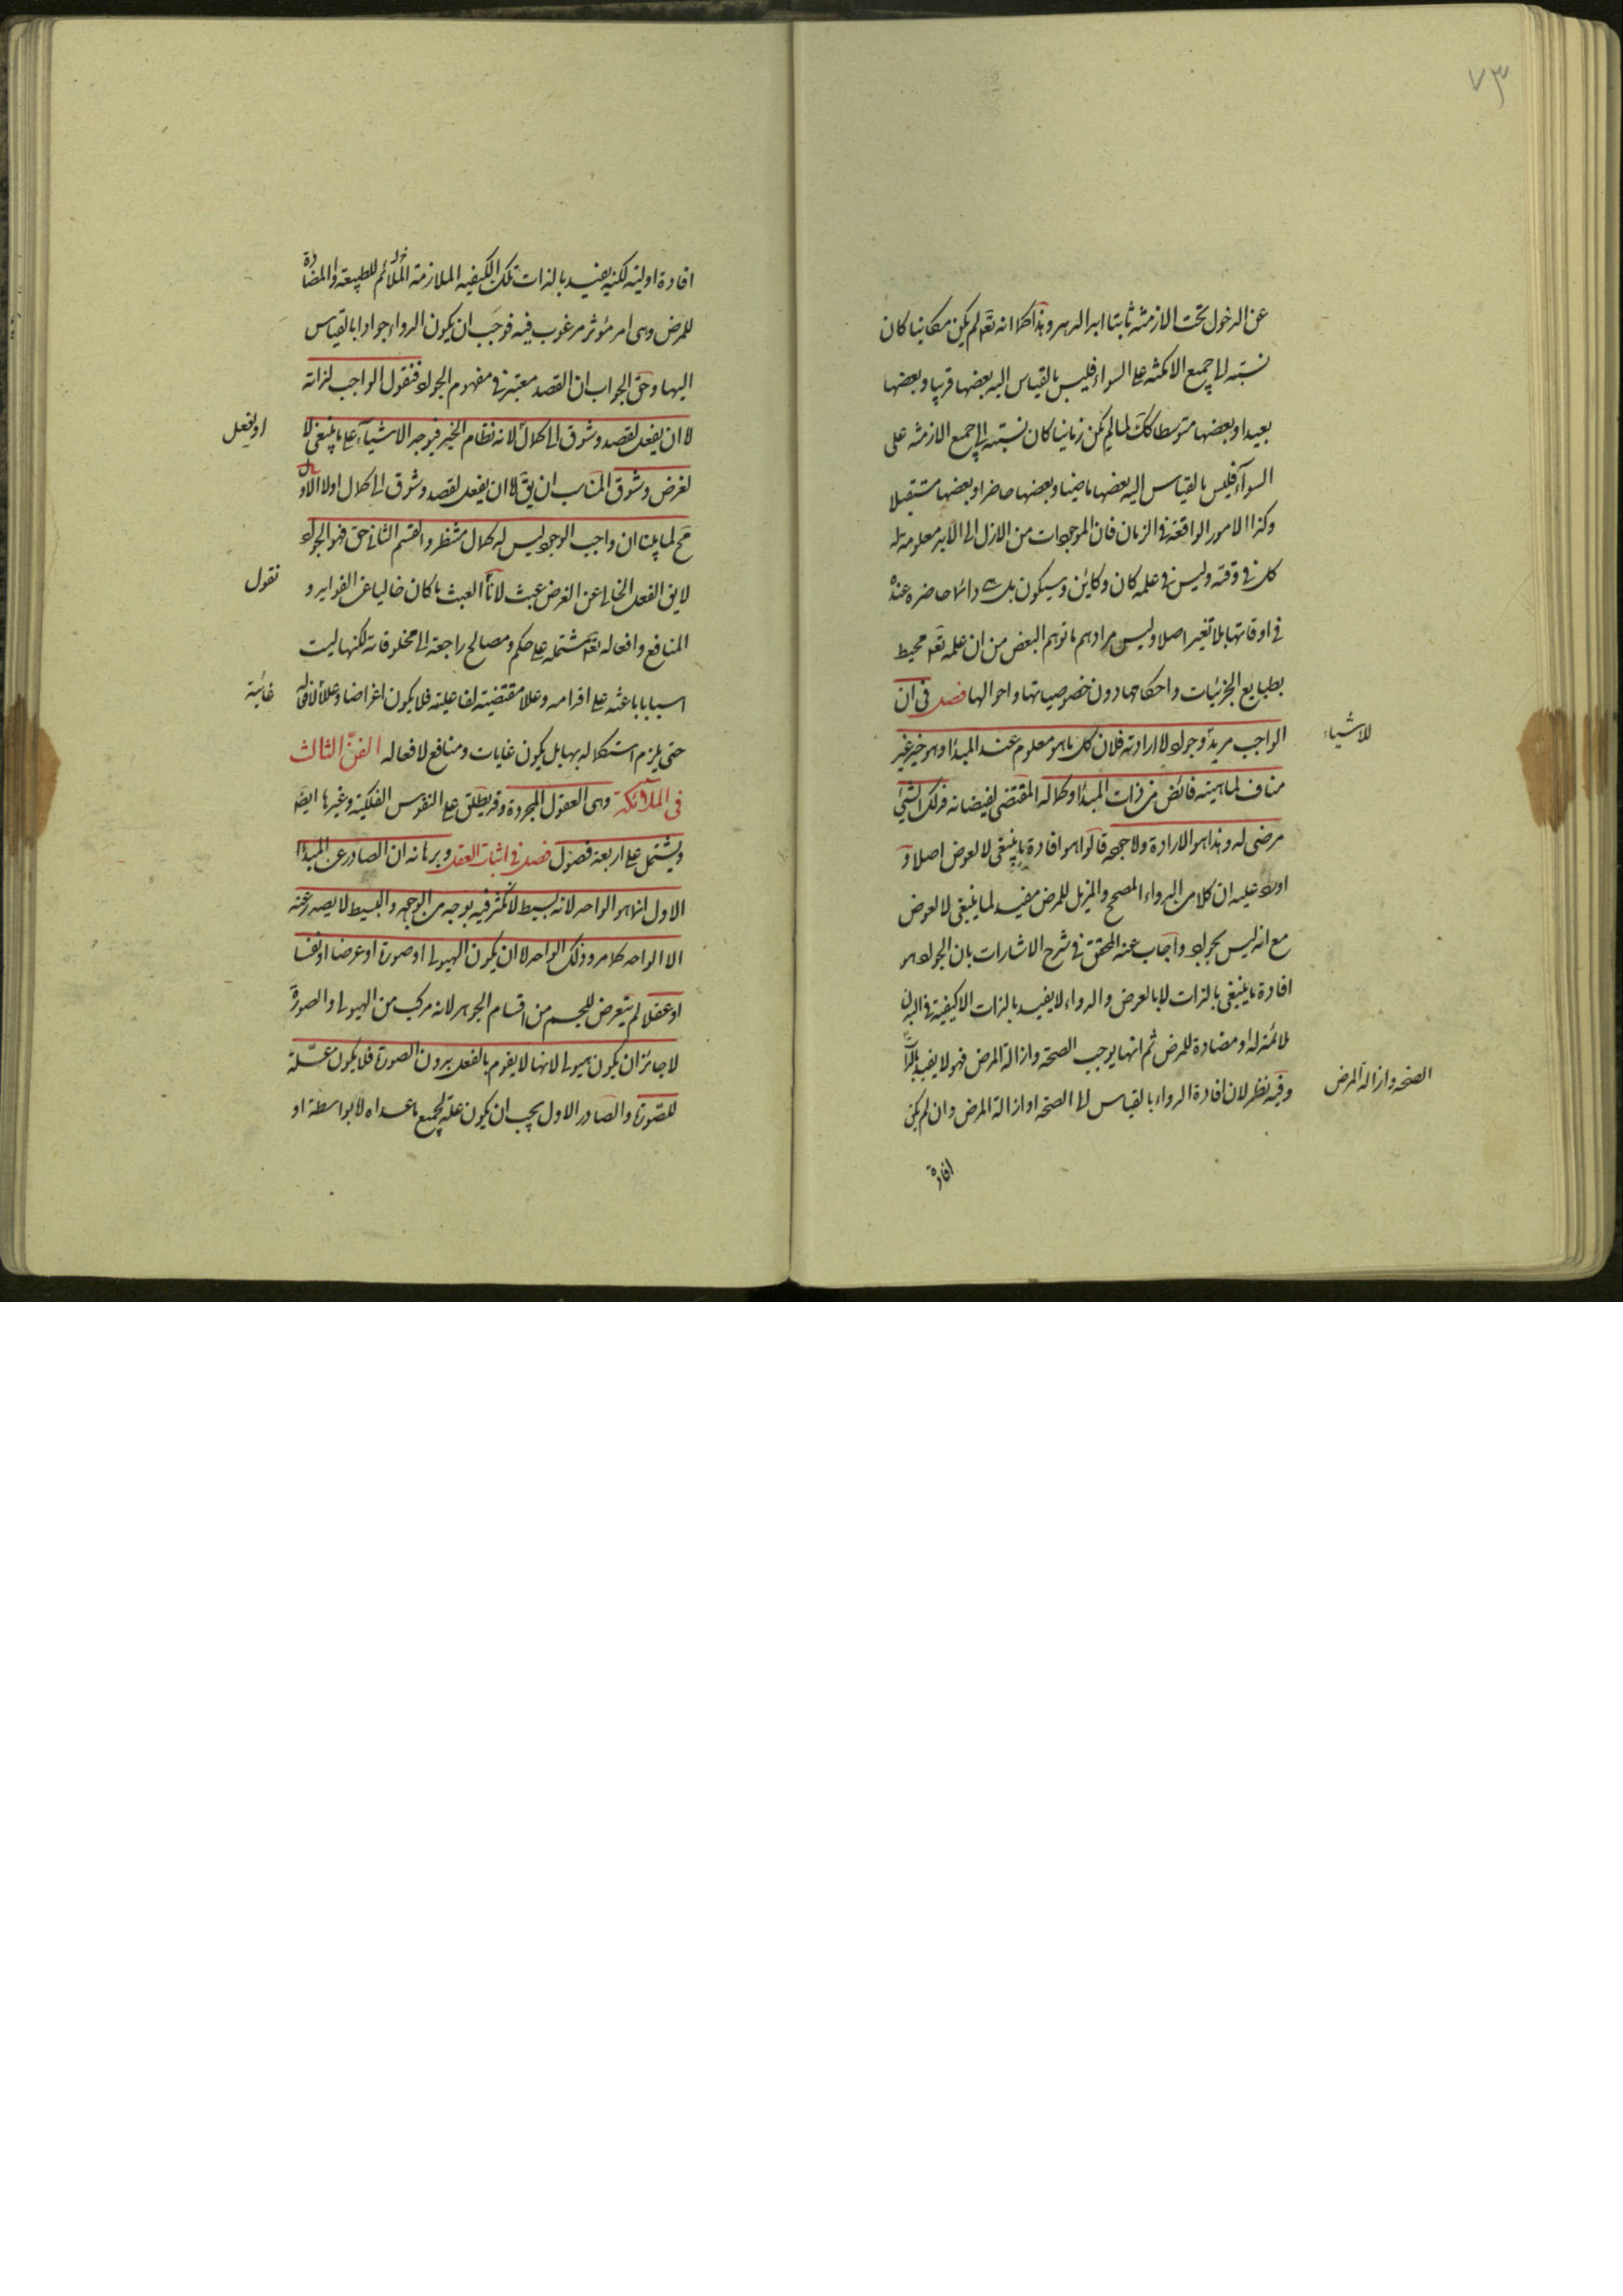 ٧٣
عن الدخول تحت الازمنة ثابتا ابد الدهر وهذا كما انه تعّ لم يكن مكانيا كان
نسبته الى جميع الامكنة على السواء فليس بالقياس اليه بعضها قريبا وبعضها
بعيدا وبعضها متوسطا كك لما لم يكن زمانيا كان نسبته الى جميع الازمنة على
السوآء فليس بالقياس اليه بعضها ماضيا وبعضها حاضرا وبعضها مستقبلا
وكذا الامور الواقعة فى الزمان فان الموجودات من الازل الى الابد معلومة له
كل فى وقته وليس فى علمه كان وكائن وسيكون بل هى دائما حاضرة عنده
فى اوقاتها بلا تغير اصلا وليس مرادهم ما توهم البعض من ان علمه تعّ محيط
بطبايع الجزئيات واحكامها دون خصوصياتها واحوالها فصل فى ان
الواجب مريد للاشياء وجواد لا ارادته فلان كل ما هو معلوم عند المبدأ وهو خير غير
مناف لماهيته فائض من ذات المبدأ وكماله المقتضى لفيضانه فذلك الشئ
مرضى له وهذا هو الارادة ولا جوده قالوا هو افادة ما ينبغى لا لعوض اصلا و
اورد عليه ان كلا من الدواء المصح والمزيل للمرض مفيد لما ينبغى لا لعوض
مع انه ليس بجواد واجاب عنه المحقق فى شرح الاشارات بان الجود هو
افادة ما ينبغى بالذات لا بالعرض والدواء لا يفيد بالذات الا كيفية فى البدن
ملائمة له او مضادة للمرض ثم انها يوجب الصحة وازالة المرض فهو لا يفيد بالذات
الصحة وازالة المرض
وفيه نظر لان افادة الدواء بالقياس الى الصحة او ازالة المرض وان لم يكن
افادة
افادة اولية لكنه يفيد بالذات تلك الكيفية الملازمة الملائم للطبيعة والمضادة
للمرض وهى امر مؤثر مرغوب فيه فوجب ان يكون الدواء جوادا بالقياس
اليها وحق الجواب ان القصد معتبر فى مفهوم الجود فنقول الواجب لذاته
اما ان يفعل لقصد وشوق الى كمال او يفعل لانه نظام الخير فيوجد الاشيآء على ما ينبغى لا
لغرض وشوق المناسب ان يقّ اما ان يفعل لقصد وشوق الى كمال اولا والاول
مح لما بينا ان واجب الوجود ليس له كمال منتظر والقسم الثانى حق فهو الجواد
لايق الفعل الخالى عن الغرض عبث لانا نقول العبث ما كان خاليا عن الفوايد و
المنافع وافعاله تعّ مشتملة على حكم ومصالح راجعة الى مخلوقاته لكنها ليست
اسبابا باعثة على اقدامه وعللا مقتضية لفاعليته فلا يكون اغراضا وعللا غائية لافعاله
حتى يلزم استكماله بها بل يكون غايات ومنافع لافعاله الفنّ الثالث
فى الملآئكة وهى العقول المجردة وقد يطلق على النفوس الفلكية وغيرها ايضّ
ويشتمل على اربعة فصول فصل فى اثبات العقل وبرهانه ان الصادر عن المبدأ
الاول انما هو الواحد لانه بسيط لا تكثر فيه بوجه من الوجوه والبسيط لا يصدر عنه
الا الواحد كما مر وذلك الواحد اما ان يكون الهيولى او صورة او عرضا او نفسا
او عقلا لم يتعرض للجسم من اقسام الجوهر لانه مركب من الهيولى والصورة
لا جائز ان يكون هيولى لانها لا يقوم بالفعل بدون الصورة فلا يكون علة
للصورة والصادر الاول يجب ان يكون علة لجميع ما عداه لا بواسطة او